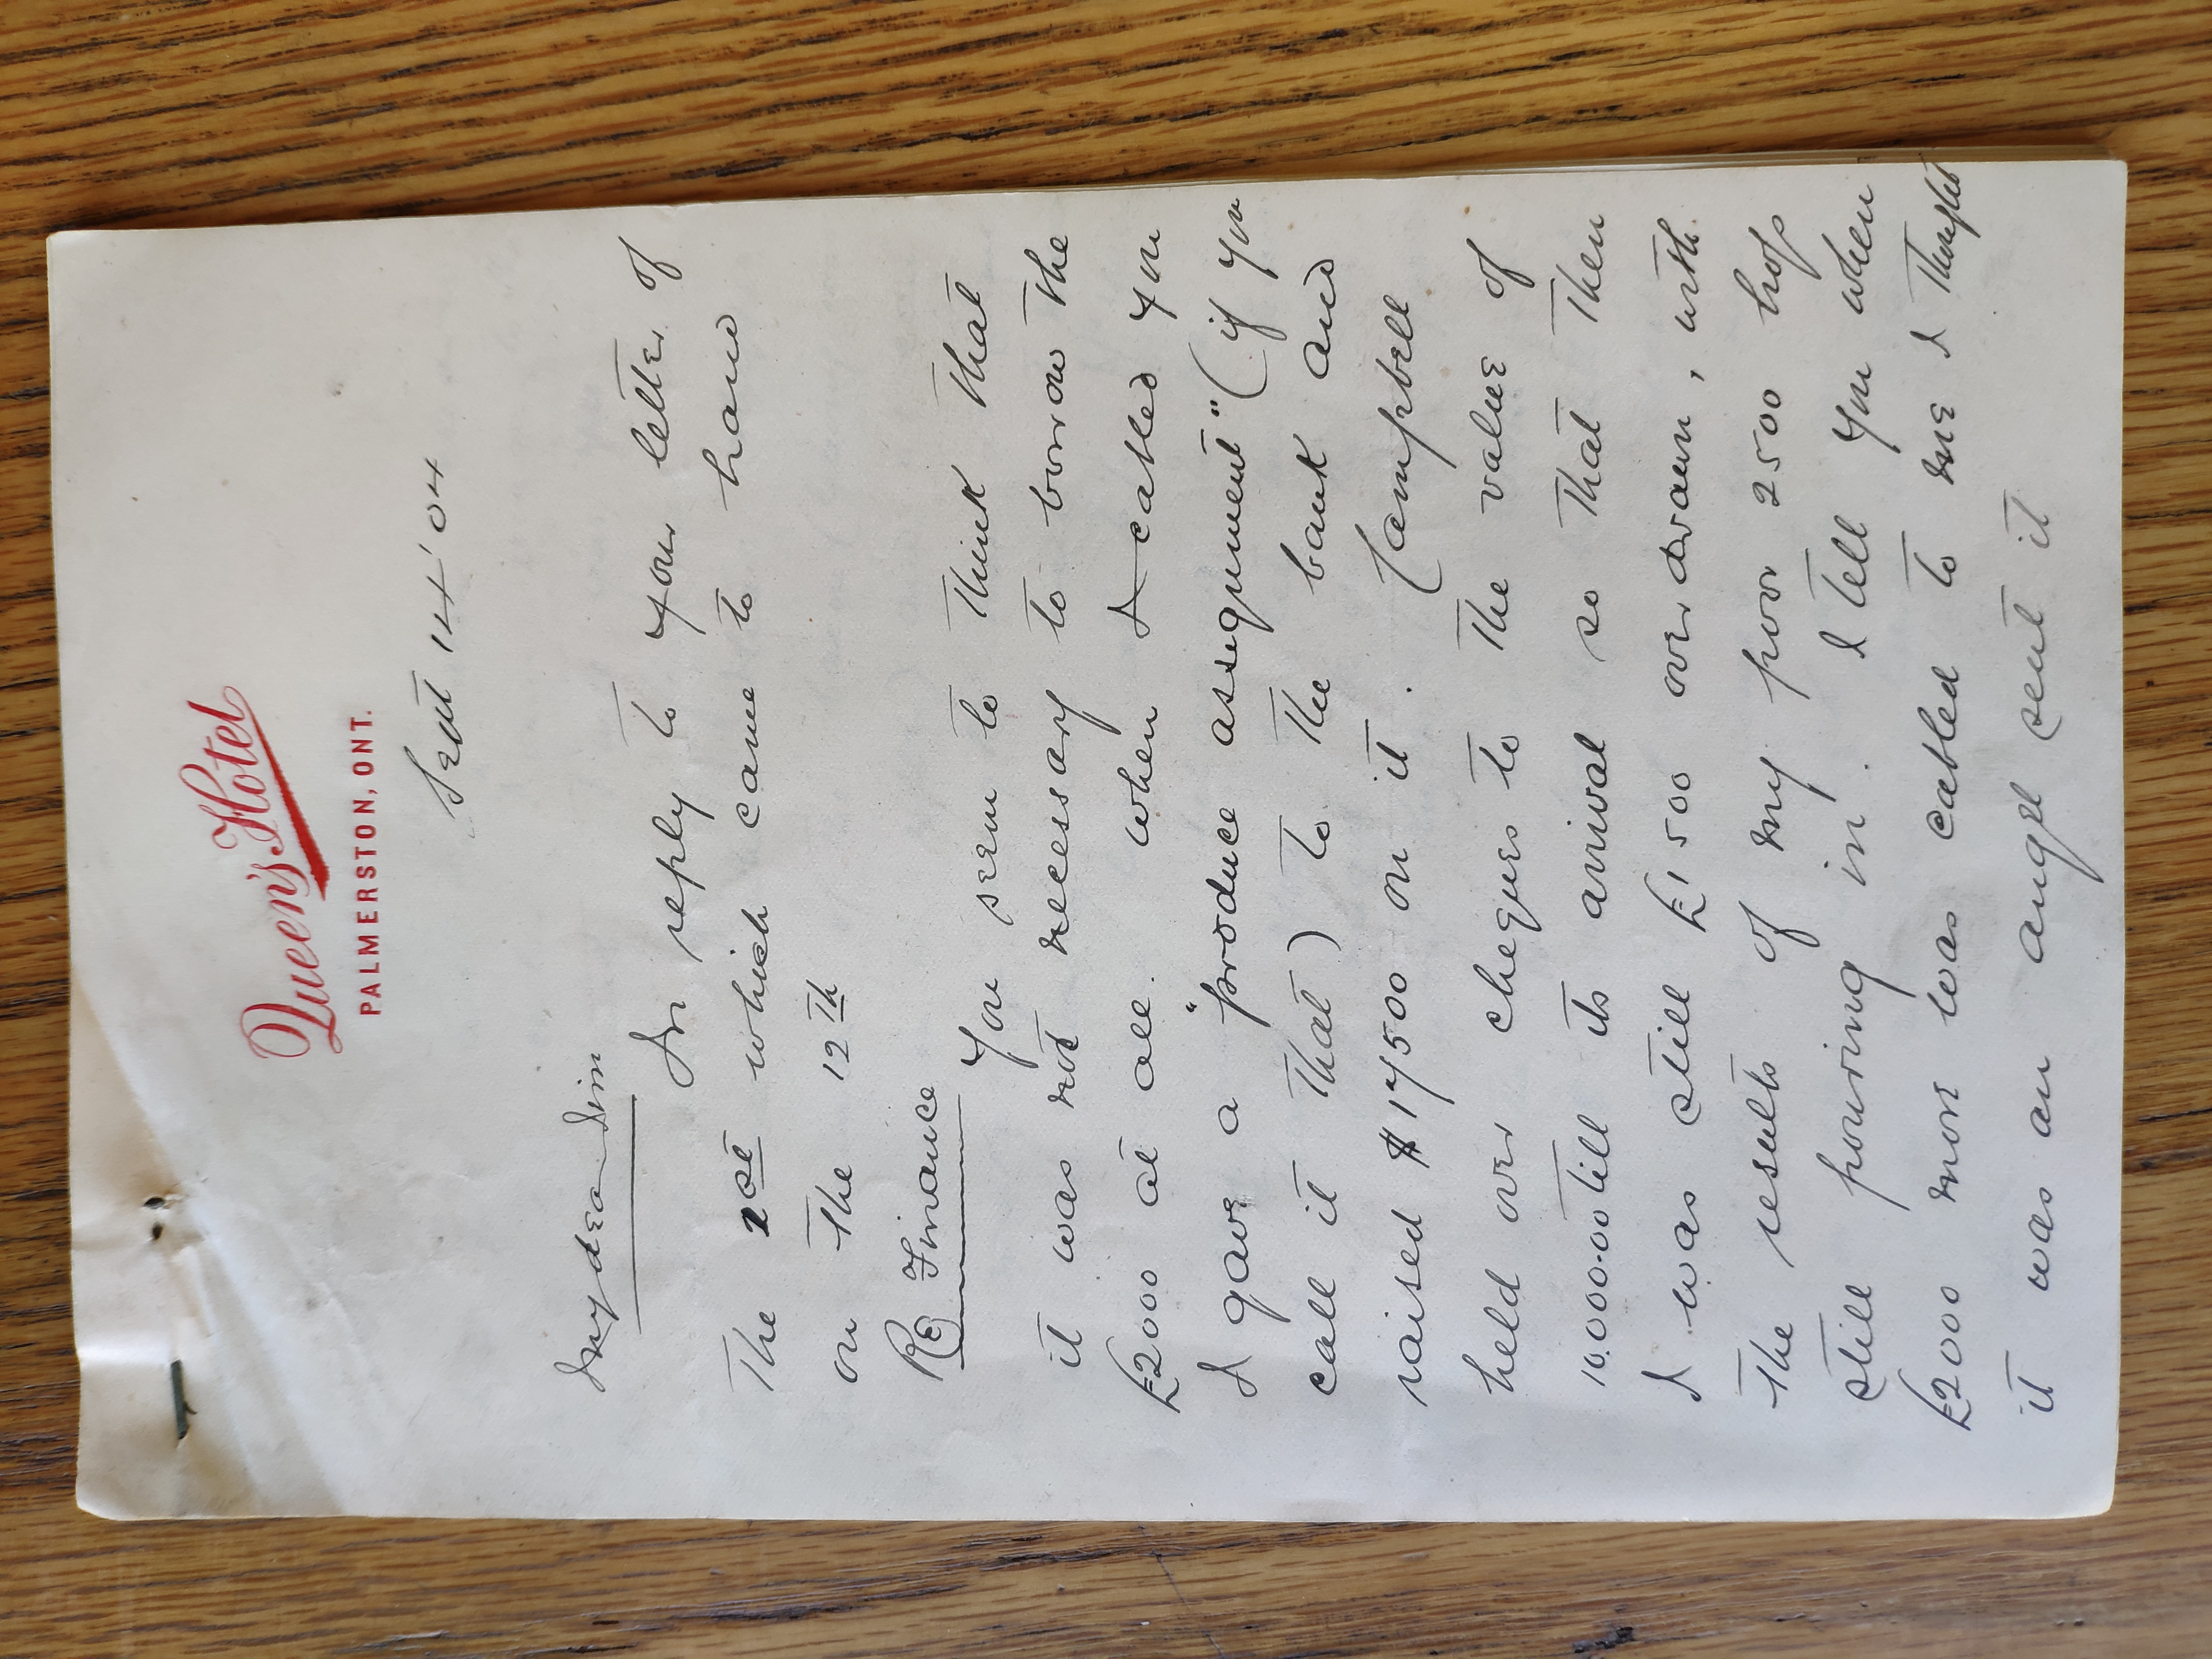 Queen's Hotel
PALMERSTON, ONT.
Sept 14/'04
My dear Jim
In reply to your letter of
the 2st which came to hand
on the 12th
Re Finance
You seem to think that
it was not necessary to borrow the
£2000 at all. when I cabled you
I gave a "produce assignment" (if you
call it that) to the bank and
raised $17500 on it. Campbell
held over cheques to the value of
10.000.00 till its arrival so that then
I was still £1500 overdrawn, with
the results of my poor 2500 hogs
still pouring in. I tell you when
£2000 more was cabled to me I thought
it was an angel sent it